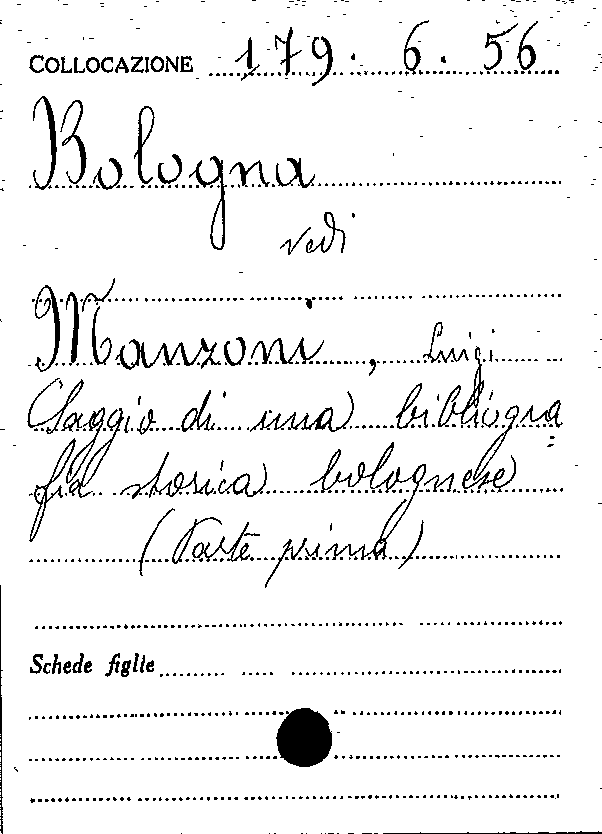 COLLOCAZIONE 179. 6. 56
Bologna
vedi
Manzoni, Luigi
Saggio di una bibliogra=
fia storica bolognese
(Parte prima)
Schede figlie